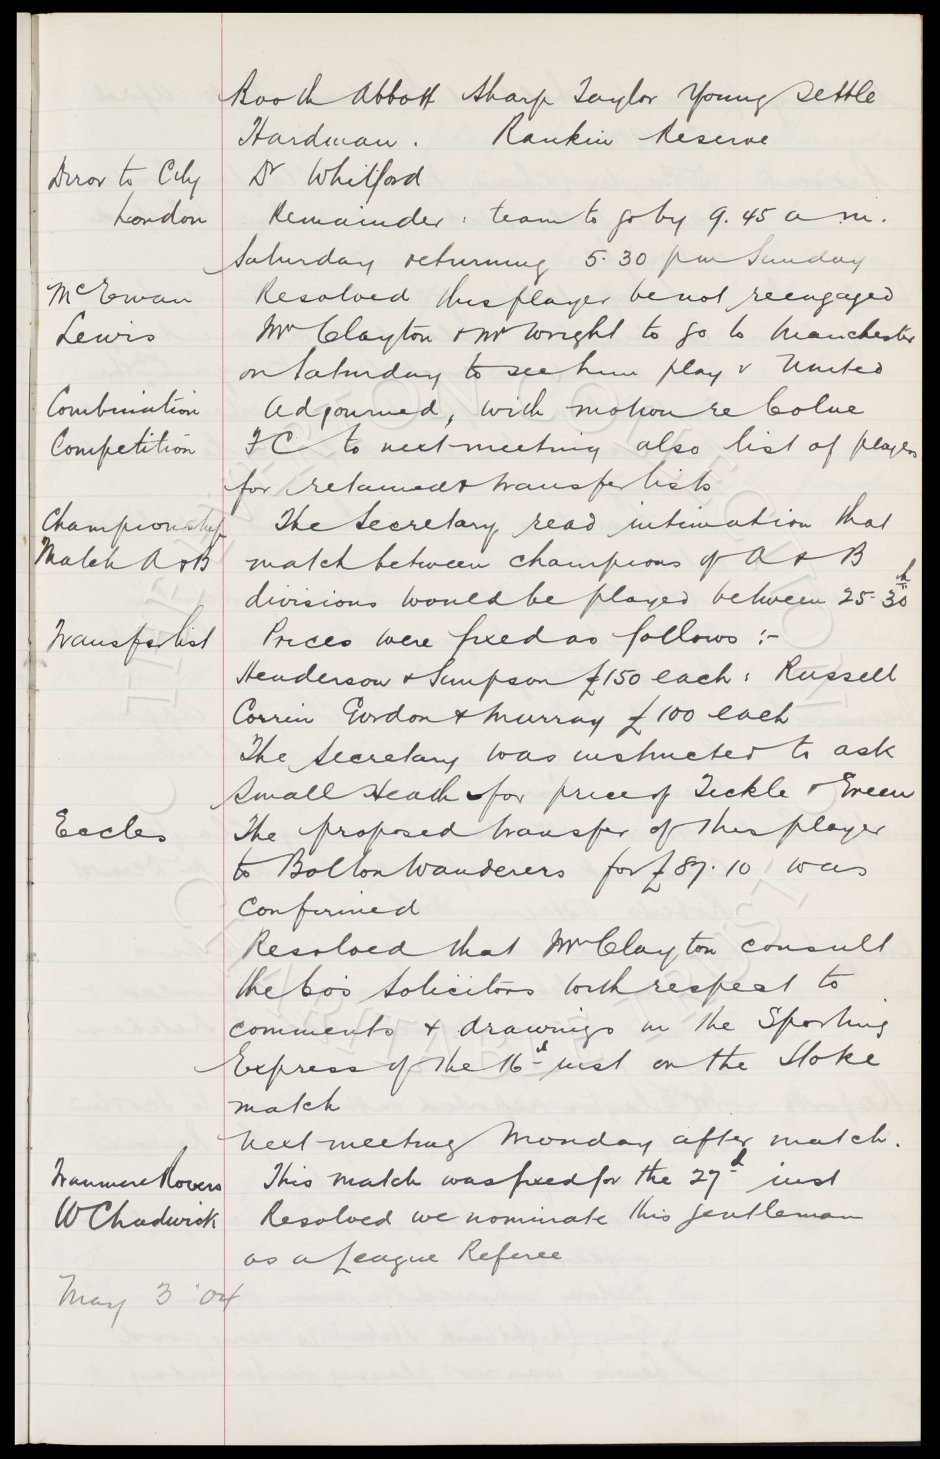 Booth Abbott Sharp Taylor Young Settle
Hardman. Rankin Reserve
Diror to City Dr Whitford
London Remainder: team to go by 9.45 a.m.
Saturday returning 5.30 pm Sunday
McEwan Resolved this player be not reengaged
Lewis Mr Clayton & Mr Wright to go to Manchester
on Saturday to see him play v United
Combination Adjourned, with motion re Colne
Competition F C to next meeting also list of players
for retained & transfer lists
Championship The Secretary read intimation that
Match A & B match between champions of A & B
divisions would be played between 25-30th
Transfer list Prices were fixed as follows:-
Henderson & Simpson £150 each: Russell
Corrin Gordon & Murray £100 each
The Secretary was instructed to ask
Small Heath for price of Tickle & Green
Eccles The proposed transfer of this player
to Bolton Wanderers for £87.10 was
confirmed
Resolved that Mr Clayton consult
the Co's Solicitors with respect to
comments & drawings in the Sporting
Express of the 16th inst on the Stoke
match
Next meeting Monday after match.
Tranmere Rovers This match was fixed for the 27th inst
W Chadwick Resolved we nominate this gentleman
as a League Referee
May 3 '04